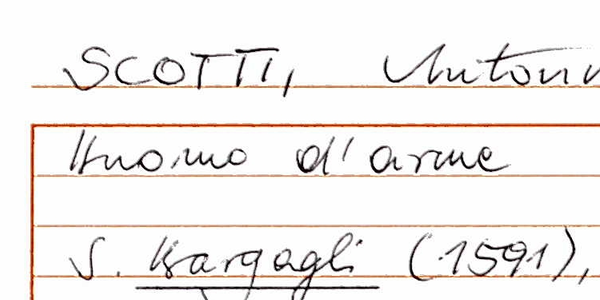 SCOTTI, Antonio
Huomo d'arme
S. Bargagli (1591),